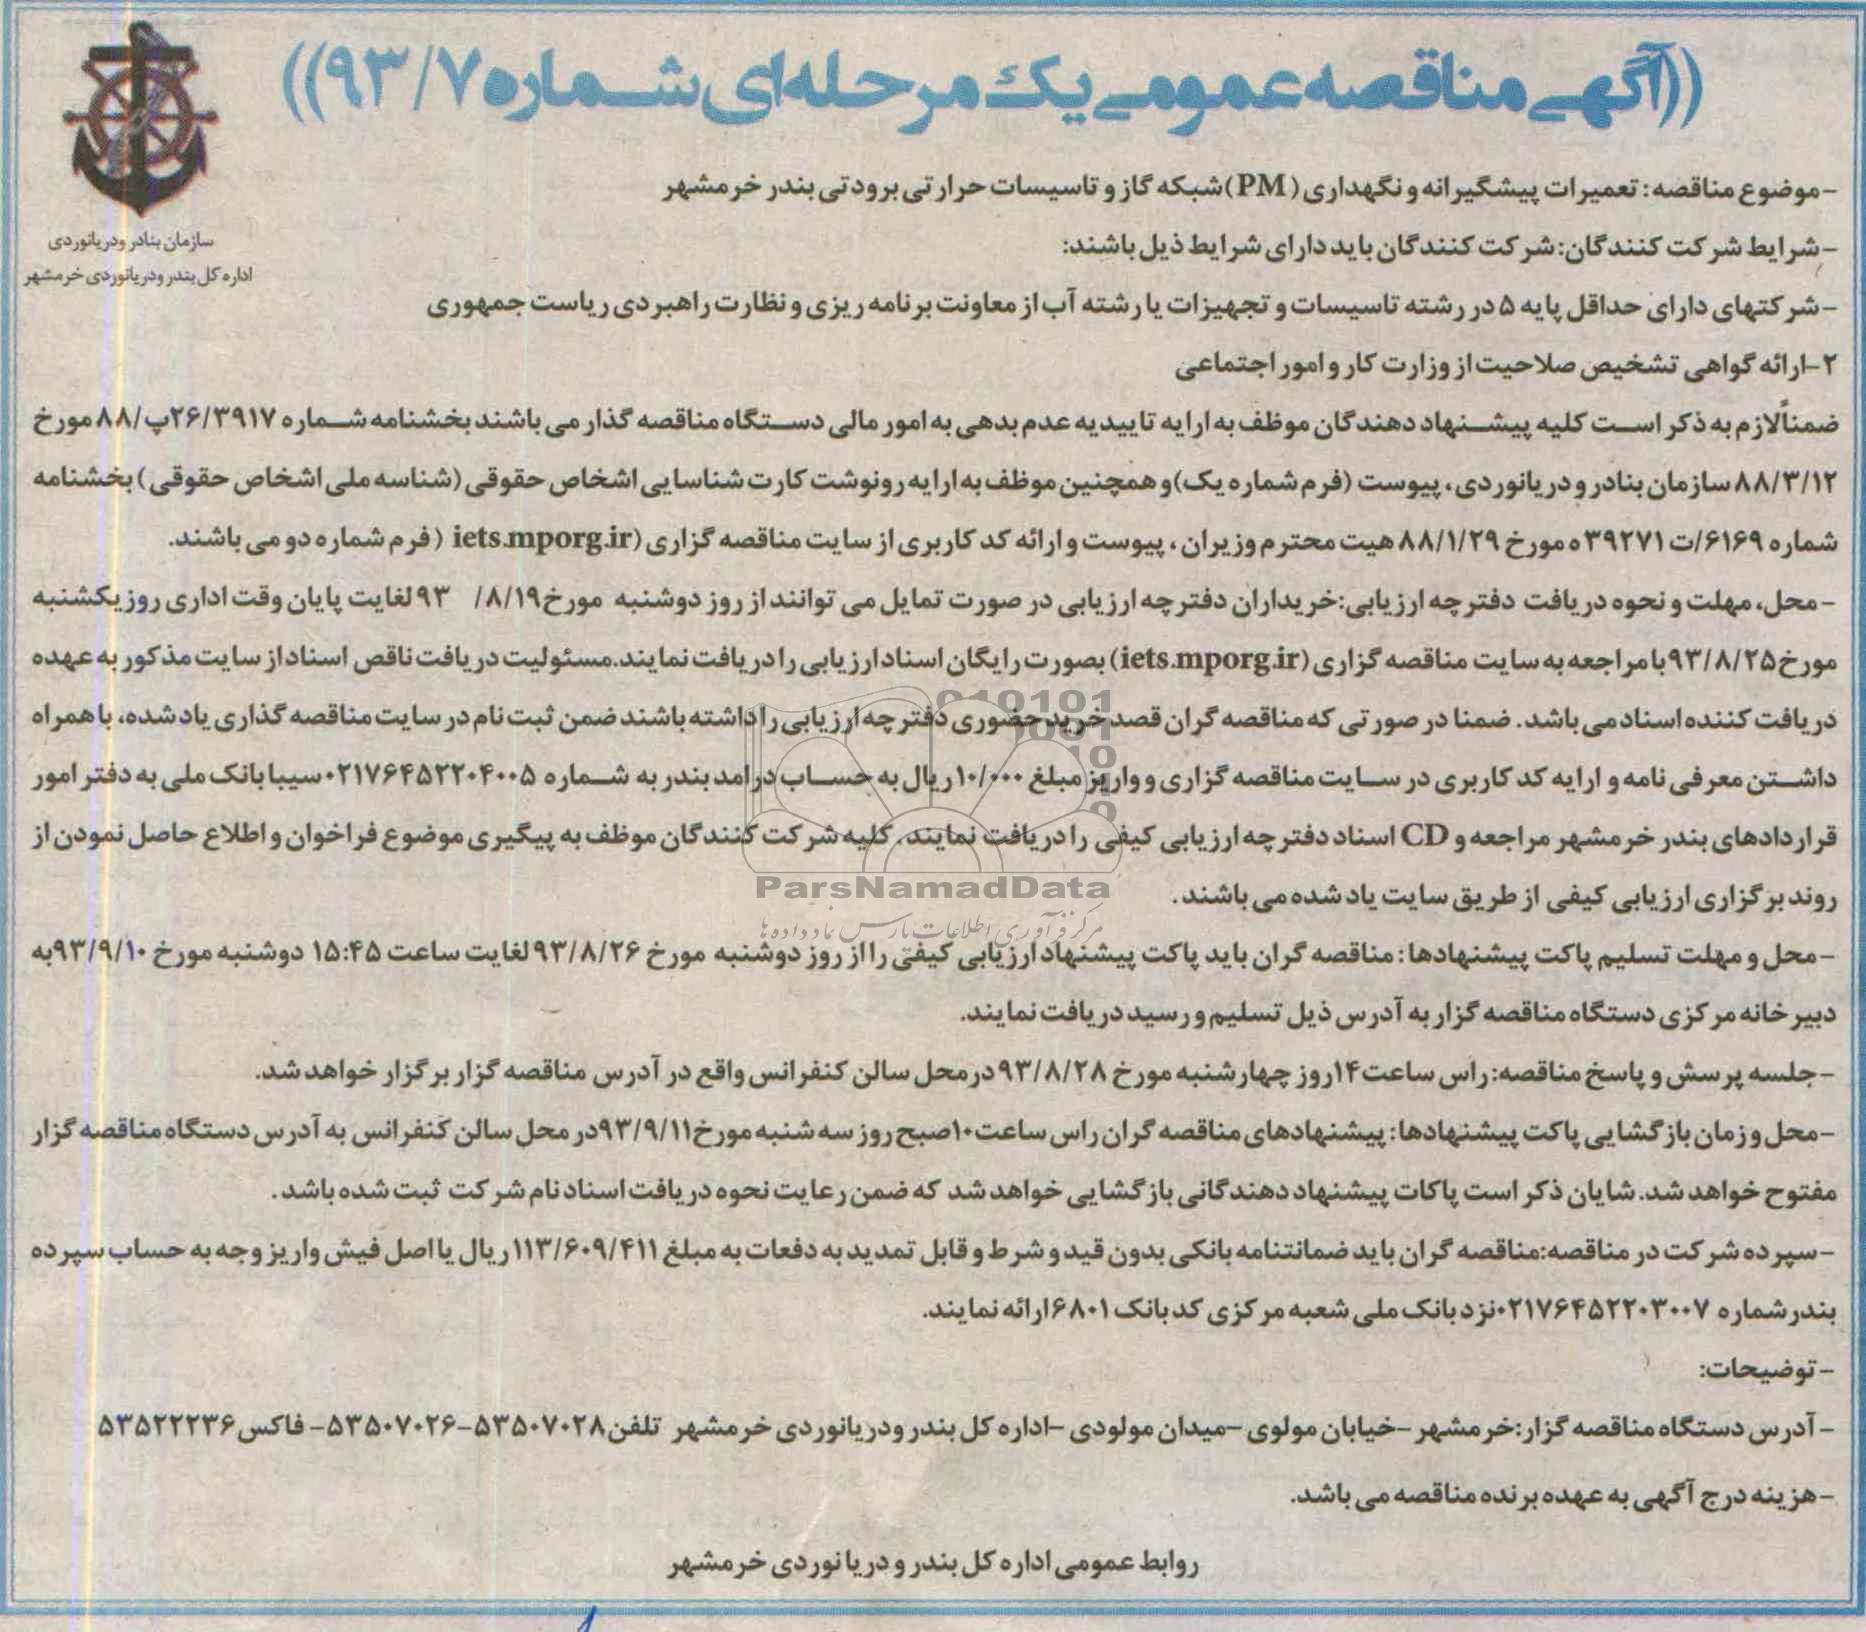 ((آگهی مناقصه عمومی یک مرحله‌ای شماره ۹۳/۷))
سازمان بنادر و دریانوردی
اداره کل بندر و دریانوردی خرمشهر
-موضوع مناقصه: تعمیرات پیشگیرانه و نگهداری (PM) شبکه گاز و تاسیسات حرارتی برودتی بندر خرمشهر
-شرایط شرکت کنندگان: شرکت کنندگان باید دارای شرایط ذیل باشند:
-شرکتهای دارای حداقل پایه ۵ در رشته تاسیسات و تجهیزات یا رشته آب از معاونت برنامه ریزی و نظارت راهبردی ریاست جمهوری
۲-ارائه گواهی تشخیص صلاحیت از وزارت کار و امور اجتماعی
ضمناً لازم به ذکر است کلیه پیشنهاد دهندگان موظف به ارایه تاییدیه عدم بدهی به امور مالی دستگاه مناقصه گذار می باشند بخشنامه شماره ۲۶/۳۹۱۷پ/۸۸ مورخ
۸۸/۳/۱۲ سازمان بنادر و دریانوردی، پیوست (فرم شماره یک) و همچنین موظف به ارایه رونوشت کارت شناسایی اشخاص حقوقی (شناسه ملی اشخاص حقوقی) بخشنامه
شماره ۶۱۶۹/ت ۳۹۲۷۱ ه مورخ ۸۸/۱/۲۹ هیت محترم وزیران، پیوست و ارائه کد کاربری از سایت مناقصه گزاری (iets.mporg.ir ( فرم شماره دو می باشند.
-محل، مهلت و نحوه دریافت دفترچه ارزیابی: خریداران دفترچه ارزیابی در صورت تمایل می توانند از روز دوشنبه مورخ ۸/۱۹/ ۹۳ لغایت پایان وقت اداری روز یکشنبه
مورخ ۹۳/۸/۲۵ با مراجعه به سایت مناقصه گزاری (iets.mporg.ir) بصورت رایگان اسناد ارزیابی را دریافت نمایند. مسئولیت دریافت ناقص اسناد از سایت مذکور به عهده
دریافت کننده اسناد می باشد. ضمنا در صورتی که مناقصه گران قصد خرید حضوری دفترچه ارزیابی را داشته باشند ضمن ثبت نام در سایت مناقصه گذاری یاد شده، با همراه
داشتن معرفی نامه و ارایه کد کاربری در سایت مناقصه گزاری و واریز مبلغ ۱۰/۰۰۰ ریال به حساب درامد بندر به شماره ۰۲۱۷۶۴۵۲۲۰۴۰۰۵ سیبا بانک ملی به دفتر امور
قراردادهای بندر خرمشهر مراجعه و CD اسناد دفترچه ارزیابی کیفی را دریافت نمایند. کلیه شرکت کنندگان موظف به پیگیری موضوع فراخوان و اطلاع حاصل نمودن از
روند برگزاری ارزیابی کیفی از طریق سایت یاد شده می باشند.
ParsNamadData
مرکز فرآوری اطلاعات پارس نماد داده ها
-محل و مهلت تسلیم پاکت پیشنهادها: مناقصه گران باید پاکت پیشنهاد ارزیابی کیفی را از روز دوشنبه مورخ ۹۳/۸/۲۶ لغایت ساعت ۱۵:۴۵ دوشنبه مورخ ۹۳/۹/۱۰ به
دبیرخانه مرکزی دستگاه مناقصه گزار به آدرس ذیل تسلیم و رسید دریافت نمایند.
-جلسه پرسش و پاسخ مناقصه: راس ساعت ۱۴ روز چهارشنبه مورخ ۹۳/۸/۲۸ در محل سالن کنفرانس واقع در آدرس مناقصه گزار برگزار خواهد شد.
-محل و زمان بازگشایی پاکت پیشنهادها: پیشنهادهای مناقصه گران راس ساعت ۱۰ صبح روز سه شنبه مورخ ۹۳/۹/۱۱ در محل سالن کنفرانس به آدرس دستگاه مناقصه گزار
مفتوح خواهد شد. شایان ذکر است پاکات پیشنهاد دهندگانی بازگشایی خواهد شد که ضمن رعایت نحوه دریافت اسناد نام شرکت ثبت شده باشد.
-سپرده شرکت در مناقصه: مناقصه گران باید ضمانتنامه بانکی بدون قید و شرط و قابل تمدید به دفعات به مبلغ ۱۱۳/۶۰۹/۴۱۱ ریال یا اصل فیش واریز وجه به حساب سپرده
بندر شماره ۰۲۱۷۶۴۵۲۲۰۳۰۰۷ نزد بانک ملی شعبه مرکزی کد بانک ۶۸۰۱ ارائه نمایند.
-توضیحات:
- آدرس دستگاه مناقصه گزار: خرمشهر -خیابان مولوی -میدان مولودی -اداره کل بندر ودریانوردی خرمشهر تلفن ۵۳۵۰۷۰۲۸-۵۳۵۰۷۰۲۶- فاکس ۵۳۵۲۲۲۳۶
-هزینه درج آگهی به عهده برنده مناقصه می باشد.
روابط عمومی اداره کل بندر و دریانوردی خرمشهر